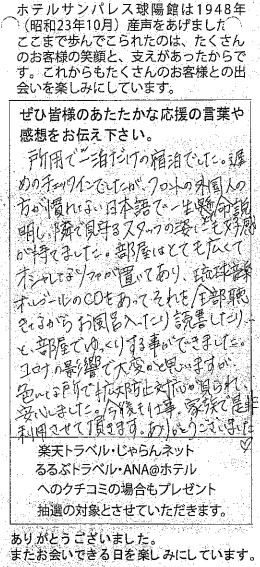 ホテルサンパレス球陽館は1948年
(昭和23年10月)産声をあげました
ここまで歩んでこられたのは、たくさん
のお客様の笑顔と、支えがあったからで
す。これからもたくさんのお客様との出
会いを楽しみにしています。
ぜひ皆様のあたたかな応援の言葉や
感想をお伝え下さい。
所用で一泊だけの宿泊でした。遅
めのチェックインでしたが、フロントの外国人の
方が慣れない日本語で一生懸命説
明し、隣で見守るスタッフの姿にも好感
が持てました。部屋はとても広くて
オシャレなソファが置いてあり、琉球音楽
オルゴールのCDもあってそれを全部聴
きながらお風呂入ったり読書したり
と、部屋でゆっくりする事ができました。
コロナの影響で大変かと思いますが
色々な所で拡大防止対応が見られ、
安心しました。今後も仕事、家族で是非
利用させて頂きます。ありがとうございました♡
楽天トラベル・じゃらんネット
るるぶトラベル・ANA@ホテル
へのクチコミの場合もプレゼント
抽選の対象とさせていただきます。
ありがとうございました。
またお会いできる日を楽しみにしています。